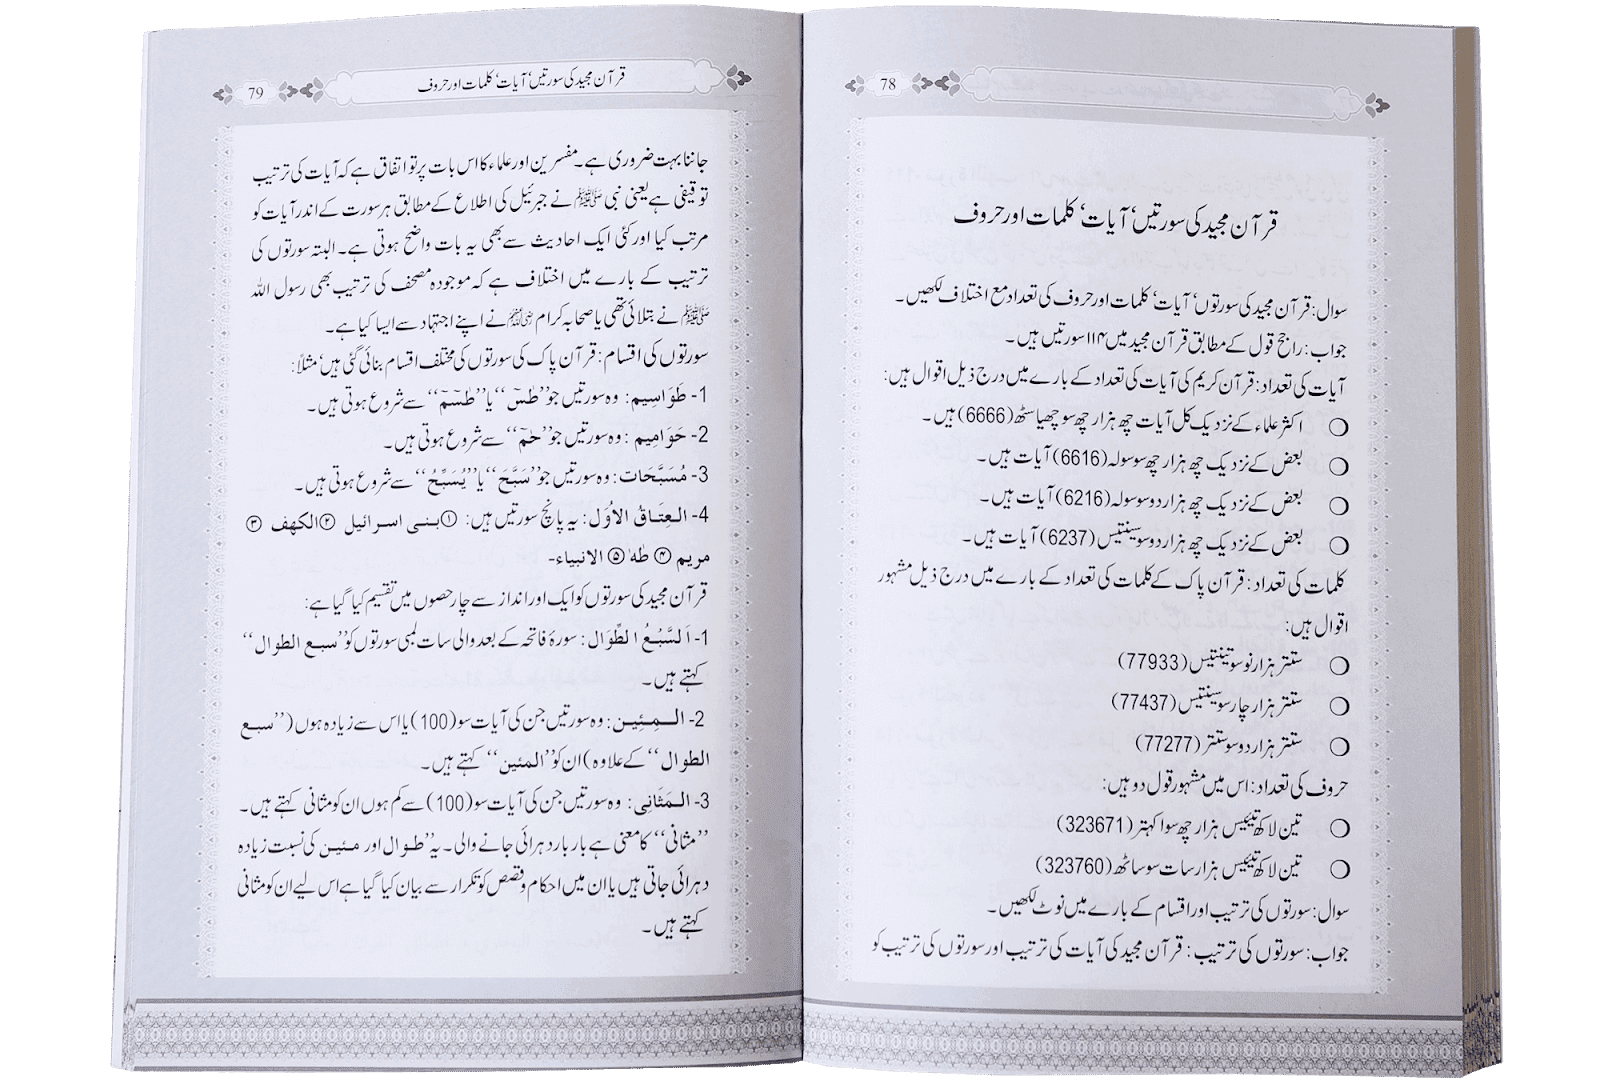 78
قرآن مجید کی سورتیں‘ آیات‘ کلمات اور حروف
سوال: قرآن مجید کی سورتوں‘ آیات‘ کلمات اور حروف کی تعداد مع اختلاف لکھیں۔
جواب: راجح قول کے مطابق قرآن مجید میں ۱۱۴ سورتیں ہیں۔
آیات کی تعداد: قرآن کریم کی آیات کی تعداد کے بارے میں درج ذیل اقوال ہیں:
○ اکثر علماء کے نزدیک کل آیات چھ ہزار چھ سو چھیاسٹھ (6666) ہیں۔
○ بعض کے نزدیک چھ ہزار چھ سو سولہ (6616) آیات ہیں۔
○ بعض کے نزدیک چھ ہزار دو سو سولہ (6216) آیات ہیں۔
○ بعض کے نزدیک چھ ہزار دو سو سینتیس (6237) آیات ہیں۔
کلمات کی تعداد: قرآن پاک کے کلمات کی تعداد کے بارے میں درج ذیل مشہور
اقوال ہیں:
○ ستتر ہزار نو سو تینتیس (77933)
○ ستتر ہزار چار سو سینتیس (77437)
○ ستتر ہزار دو سو ستتر (77277)
حروف کی تعداد: اس میں مشہور قول دو ہیں:
○ تین لاکھ تیئیس ہزار چھ سو اکہتر (323671)
○ تین لاکھ تیئیس ہزار سات سو ساٹھ (323760)
سوال: سورتوں کی ترتیب اور اقسام کے بارے میں نوٹ لکھیں۔
جواب: سورتوں کی ترتیب: قرآن مجید کی آیات کی ترتیب اور سورتوں کی ترتیب کو
قرآن مجید کی سورتیں‘ آیات‘ کلمات اور حروف
79
جاننا بہت ضروری ہے۔ مفسرین اور علماء کا اس بات پر تو اتفاق ہے کہ آیات کی ترتیب
توقیفی ہے یعنی نبی ﷺ نے جبرئیل کی اطلاع کے مطابق ہر سورت کے اندر آیات کو
مرتب کیا اور کئی ایک احادیث سے بھی یہ بات واضح ہوتی ہے۔ البتہ سورتوں کی
ترتیب کے بارے میں اختلاف ہے کہ موجودہ مصحف کی ترتیب بھی رسول اللہ
ﷺ نے بتلائی تھی یا صحابہ کرام نے اپنے اجتہاد سے ایسا کیا ہے۔
سورتوں کی اقسام: قرآن پاک کی سورتوں کی مختلف اقسام بنائی گئی ہیں‘ مثلاً:
1- طَوَاسِیم: وہ سورتیں جو ’’طٰسٓ‘‘ یا ’’طٰسٓمٓ‘‘ سے شروع ہوتی ہیں۔
2- حَوَامِیم: وہ سورتیں جو ’’حٰمٓ‘‘ سے شروع ہوتی ہیں۔
3- مُسَبَّحَات: وہ سورتیں جو ’’سَبَّحَ‘‘ یا ’’یُسَبِّحُ‘‘ سے شروع ہوتی ہیں۔
4- العِتَاقُ الاُوَل: یہ پانچ سورتیں ہیں: ① بنی اسرائیل ② الکهف ③
مریم ④ طٰهٰ ⑤ الانبیاء-
قرآن مجید کی سورتوں کو ایک اور انداز سے چار حصوں میں تقسیم کیا گیا ہے:
1- اَلسَّبْعُ الطِّوَال: سورۂ فاتحہ کے بعد والی سات لمبی سورتوں کو ’’سبع الطوال‘‘
کہتے ہیں۔
2- المئین: وہ سورتیں جن کی آیات سو (100) یا اس سے زیادہ ہوں (’’سبع
الطوال‘‘ کے علاوہ) ان کو ’’المئین‘‘ کہتے ہیں۔
3- المَثَانِی: وہ سورتیں جن کی آیات سو (100) سے کم ہوں ان کو مثانی کہتے ہیں۔
’’مثانی‘‘ کا معنی ہے بار بار دہرائی جانے والی۔ یہ ’’طوال اور مئین کی نسبت زیادہ
دہرائی جاتی ہیں یا ان میں احکام و قصص کو تکرار سے بیان کیا گیا ہے اس لیے ان کو مثانی
کہتے ہیں۔